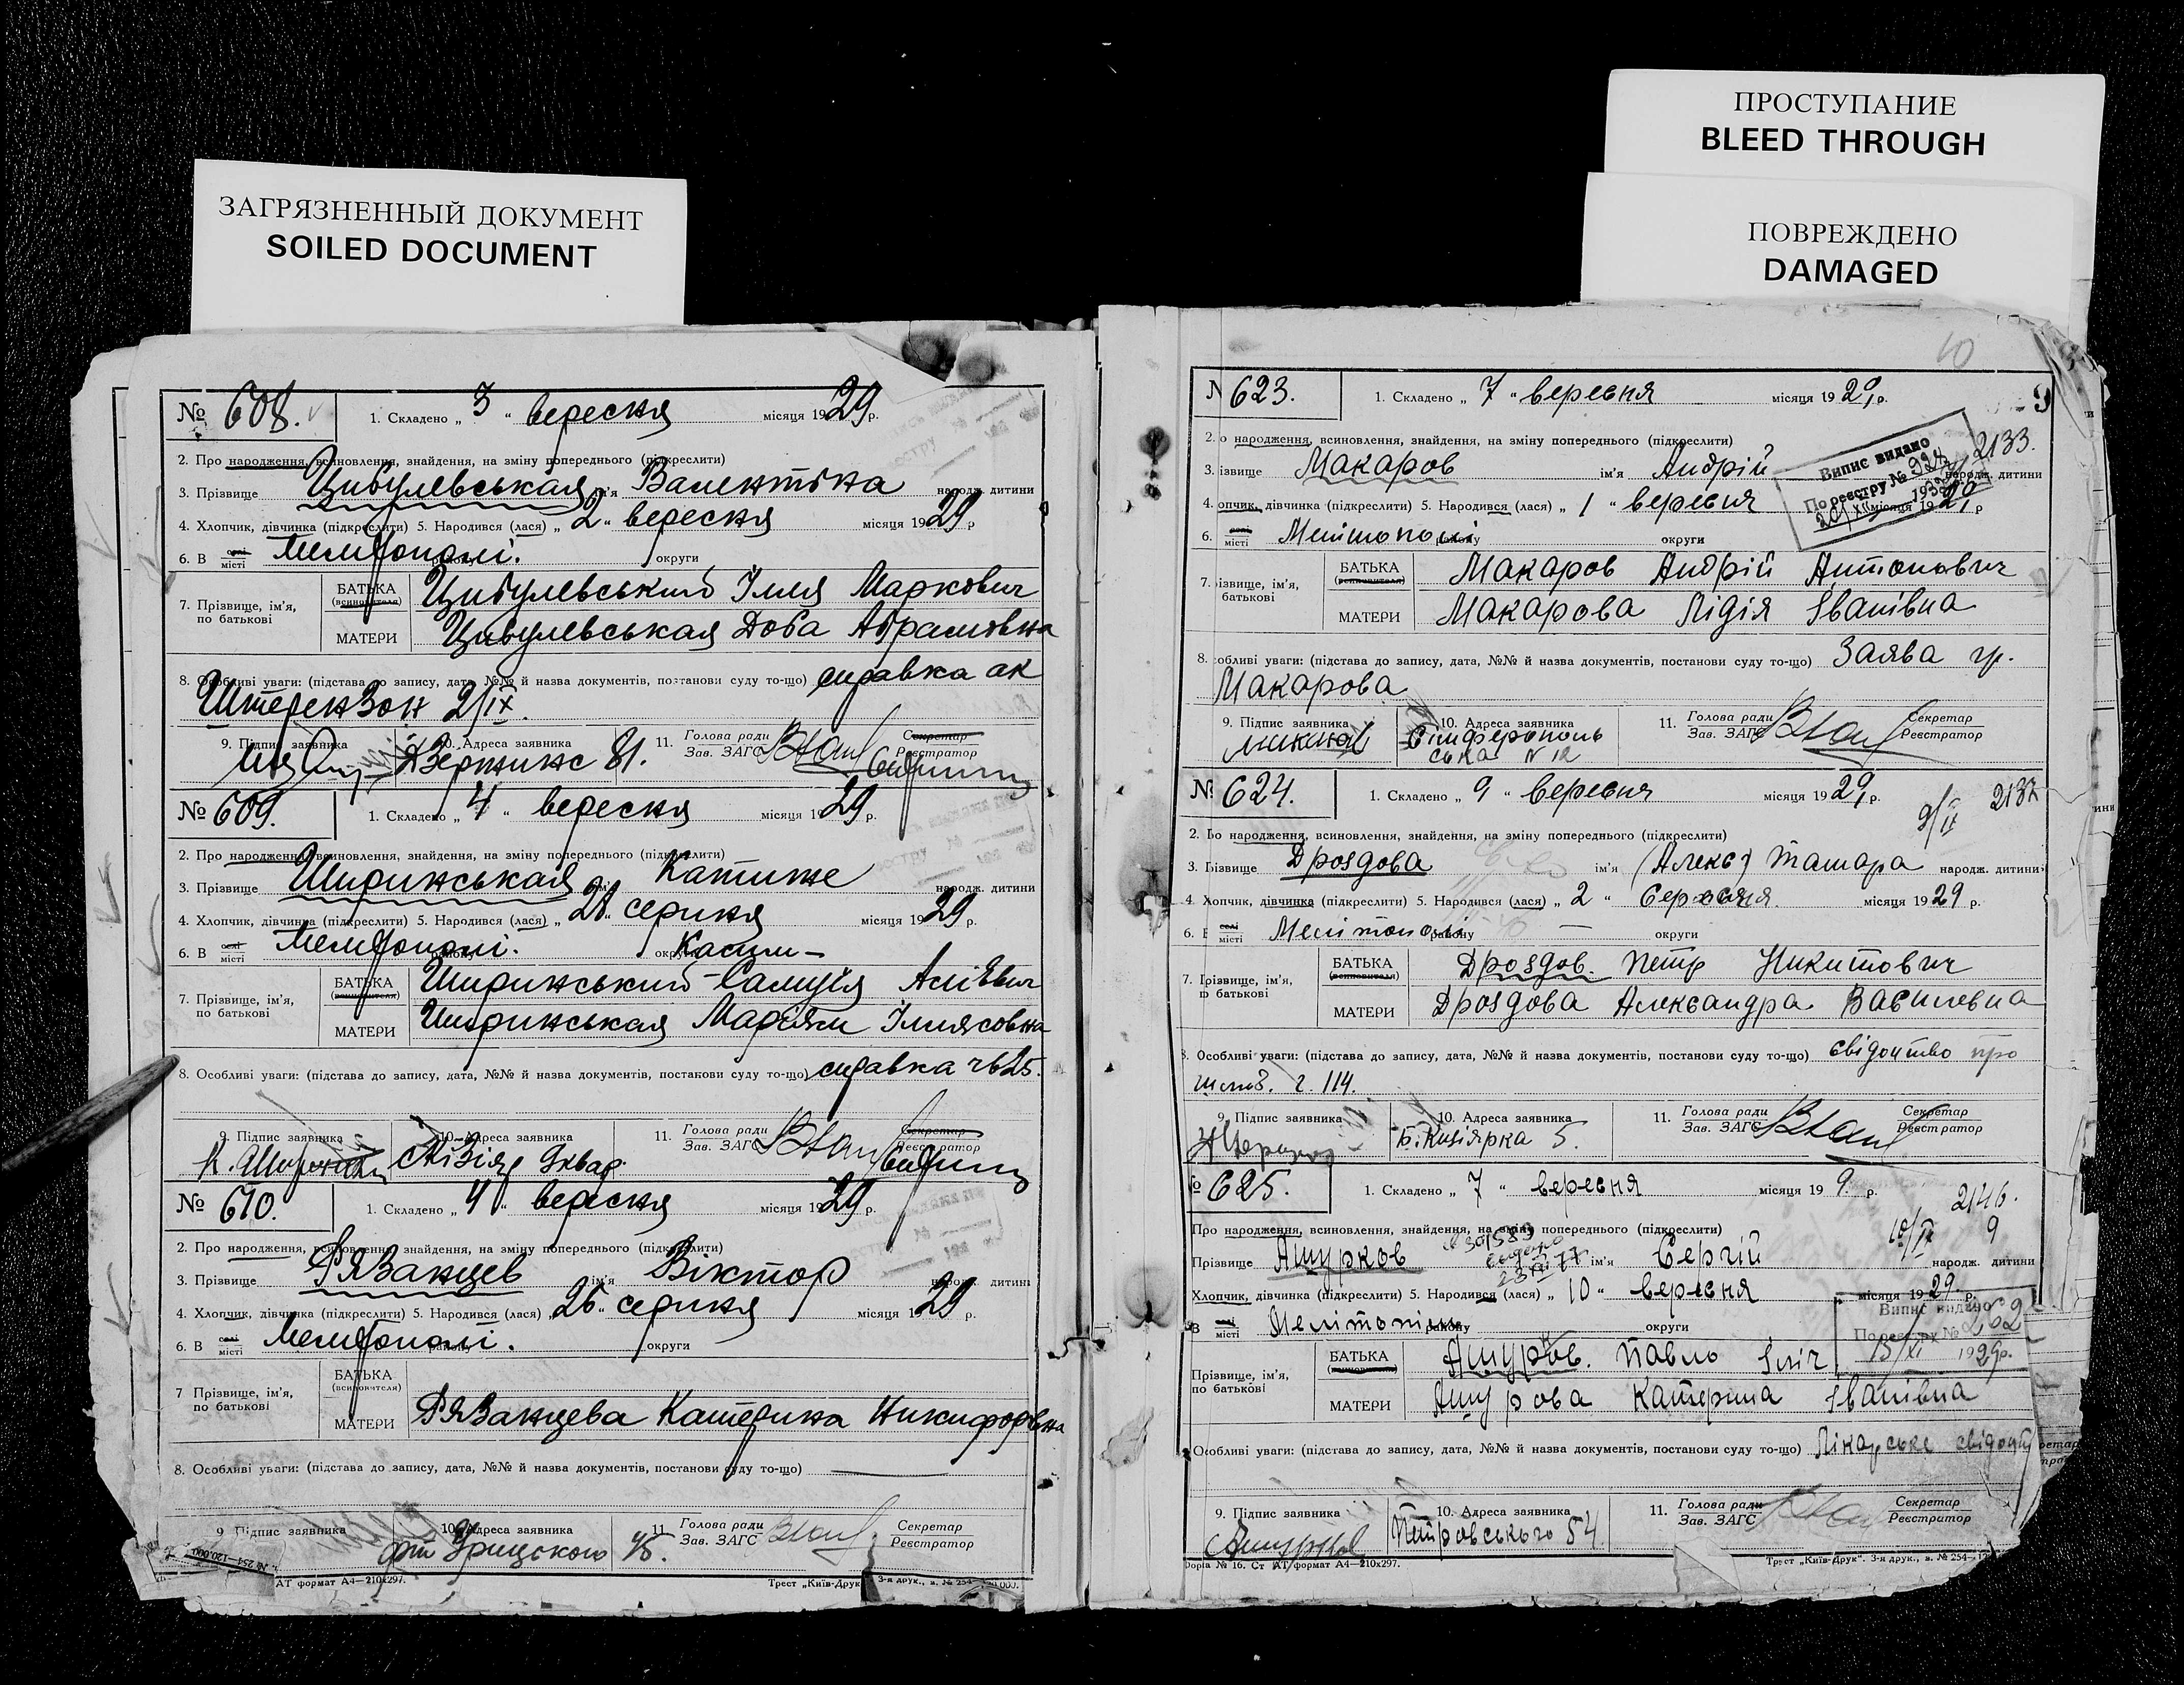 ПРОСТУПАНИЕ
BLEED THROUGH
ЗАГРЯЗНЕННЫЙ ДОКУМЕНТ
SOILED DOCUMENT
ПОВРЕЖДЕНО
DAMAGED
№ 608. 1. Складено „ 3 “ вересня місяця 1929 р.
2. Про народження, всиновлення, знайдення, на зміну попереднього (підкреслити)
3. Прізвище Цибулевськая ім'я Валентіна народж. дитини
4. Хлопчик, дівчинка (підкреслити) 5. Народився (лася) „ 2 “ вересня місяця 1929 р
6. В селі місті Мелітополі. району округи
7. Прізвище, ім'я, по батькові
БАТЬКА (всиновителя) Цибулевський Ілля Маркович
МАТЕРИ Цибулевськая Доба Абрамовна
8. Особливі уваги: (підстава до запису, дата, №№ й назва документів, постанови суду то-що) справка ак
Штерензон 2/IX.
9. Підпис заявника 10. Адреса заявника 81. 11. Голова ради Зав. ЗАГС Секретар Реєстратор
№ 609. 1. Складено „ 4 “ вересня місяця 1929 р.
2. Про народження, всиновлення, знайдення, на зміну попереднього (підкреслити)
3. Прізвище Ширинськая ім'я Катиже народж. дитини
4. Хлопчик, дівчинка (підкреслити) 5. Народився (лася) „ 28 “ серпня місяця 1929 р.
6. В селі місті Мелітополі. району округи
7. Прізвище, ім'я, по батькові
БАТЬКА (всиновителя) Ширинський
МАТЕРИ Ширинськая Іллясовна
8. Особливі уваги: (підстава до запису, дата, №№ й назва документів, постанови суду то-що) справка
9. Підпис заявника 10. Адреса заявника 11. Голова ради Зав. ЗАГС Секретар Реєстратор
№ 610. 1. Складено „ 4 “ вересня місяця 1929 р.
2. Про народження, всиновлення, знайдення, на зміну попереднього (підкреслити)
3. Прізвище Рязанцев ім'я Віктор народж. дитини
4. Хлопчик, дівчинка (підкреслити) 5. Народився (лася) „ 26 “ серпня місяця 1929 р.
6. В селі місті Мелітополі. району округи
7 Прізвище, ім'я, по батькові
БАТЬКА (всиновителя)
МАТЕРИ Рязанцева Катерина Никифоровна
8. Особливі уваги: (підстава до запису, дата, №№ й назва документів, постанови суду то-що)
9 Підпис заявника 10. Адреса заявника Урицского 11. Голова ради Зав. ЗАГС Секретар Реєстратор
АТ формат А4—210х297. Трест „Київ-Друк“ 3-я друк., в. № 254
10
9
№ 623. 1. Складено „ 7 “ вересня місяця 1929, р.
2133.
народження, всиновлення, знайдення, на зміну попереднього (підкреслити)
Випис видано
По реєстру № 924
3. ізвище Макаров ім'я Андрій народж. дитини
4. опчик, дівчинка (підкреслити) 5. Народився (лася) „ 1 “ вересня місяця 1929, р
6. селі місті Мелітополі району округи
7. ізвище, ім'я, батькові
БАТЬКА (всиновителя) Макаров Андрій Антонович
МАТЕРИ Макарова Лідія Іванівна
8. собливі уваги: (підстава до запису, дата, №№ й назва документів, постанови суду то-що) Заява гр.
Макарова
9. Підпис заявника 10. Адреса заявника Сімферопольська № 12 11. Голова ради Зав. ЗАГС Секретар Реєстратор
№ 624. 1. Складено „ 9 “ вересня місяця 1929, р.
2. о народження, всиновлення, знайдення, на зміну попереднього (підкреслити)
3. різвище Дроздова ім'я (Алекс) Тамара народж. дитини
4 Хопчик, дівчинка (підкреслити) 5. Народився (лася) „ 2 “ Серпня місяця 1929 р.
6. селі місті Мелітополі району — округи
7. Прізвище, ім'я, по батькові
БАТЬКА (всиновителя) Дроздов. Петр Никитович
МАТЕРИ Дроздова Александра Василевна
8. Особливі уваги: (підстава до запису, дата, №№ й назва документів, постанови суду то-що) свідоцтво про
шлюб. г. 114.
9. Підпис заявника 10. Адреса заявника 5. 11. Голова ради Зав. ЗАГС Секретар Реєстратор
№ 625. 1. Складено „ 7 “ вересня місяця 19 9. р.
2146.
Про народження, всиновлення, знайдення, на зміну попереднього (підкреслити)
Прізвище Ашурков ім'я Сергій народж. дитини
Хлопчик, дівчинка (підкреслити) 5. Народився (лася) „ 10 “ вересня місяця 1929. р.
Випис видано
По реєстру №
В селі місті Мелітопіль району округи
Прізвище, ім'я, по батькові
БАТЬКА (всиновителя) Ашурков. Павло Ілліч
МАТЕРИ Ашурова Катерина Іванівна
Особливі уваги: (підстава до запису, дата, №№ й назва документів, постанови суду то-що) Лікарське свідоцт
9. Підпис заявника Ашурков 10. Адреса заявника Петровського 54 11. Голова ради Зав. ЗАГС Секретар Реєстратор
Форма № 16. Ст АТ формат А4—210х297. Трест „Київ-Друк“. 3-я друк., в. № 254